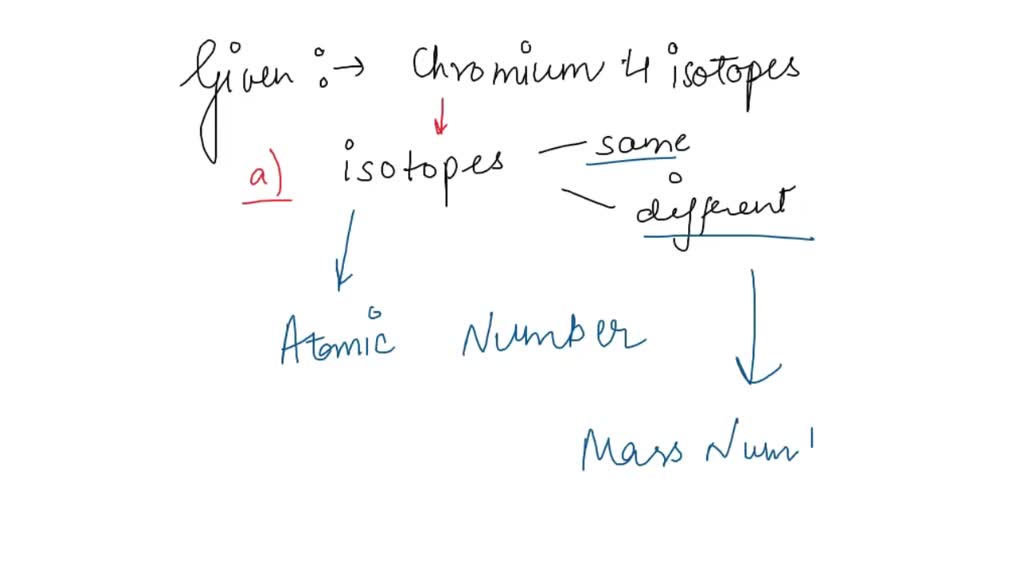 Given :→ Chromium 4 isotopes
a) isotopes — same
different
Atomic Number
Mass Num